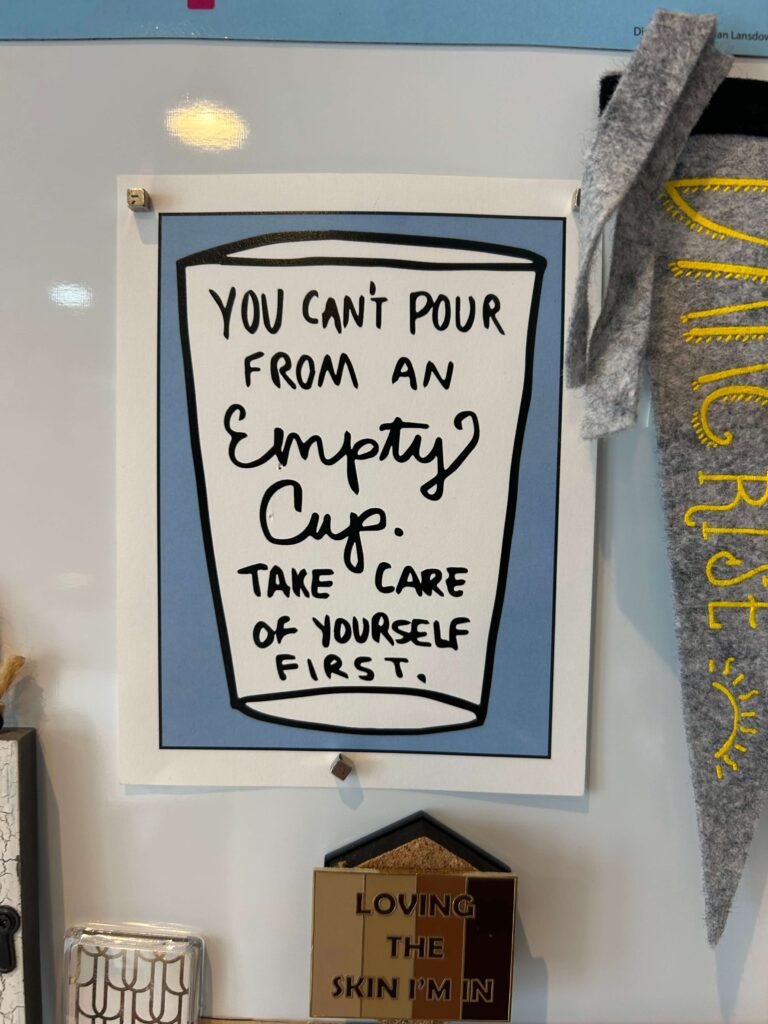 YOU CAN'T POUR
FROM AN
Empty
Cup.
TAKE CARE
OF YOURSELF
FIRST.
RISE
LOVING
THE
SKIN I'M IN